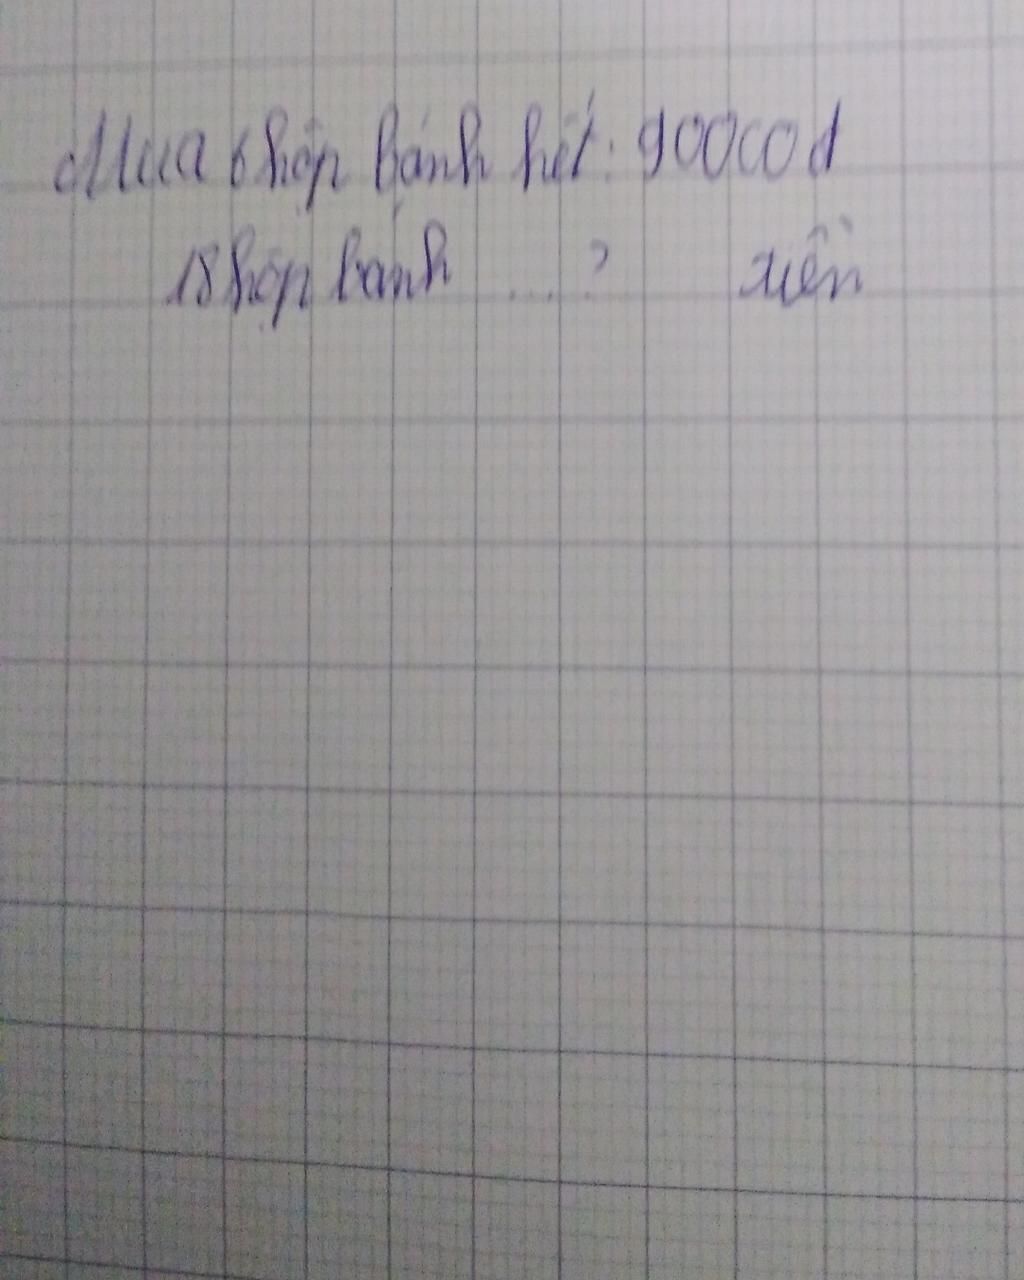 Mua 6 hộp bánh hết: 90000 đ
18 hộp bánh ....? tiền